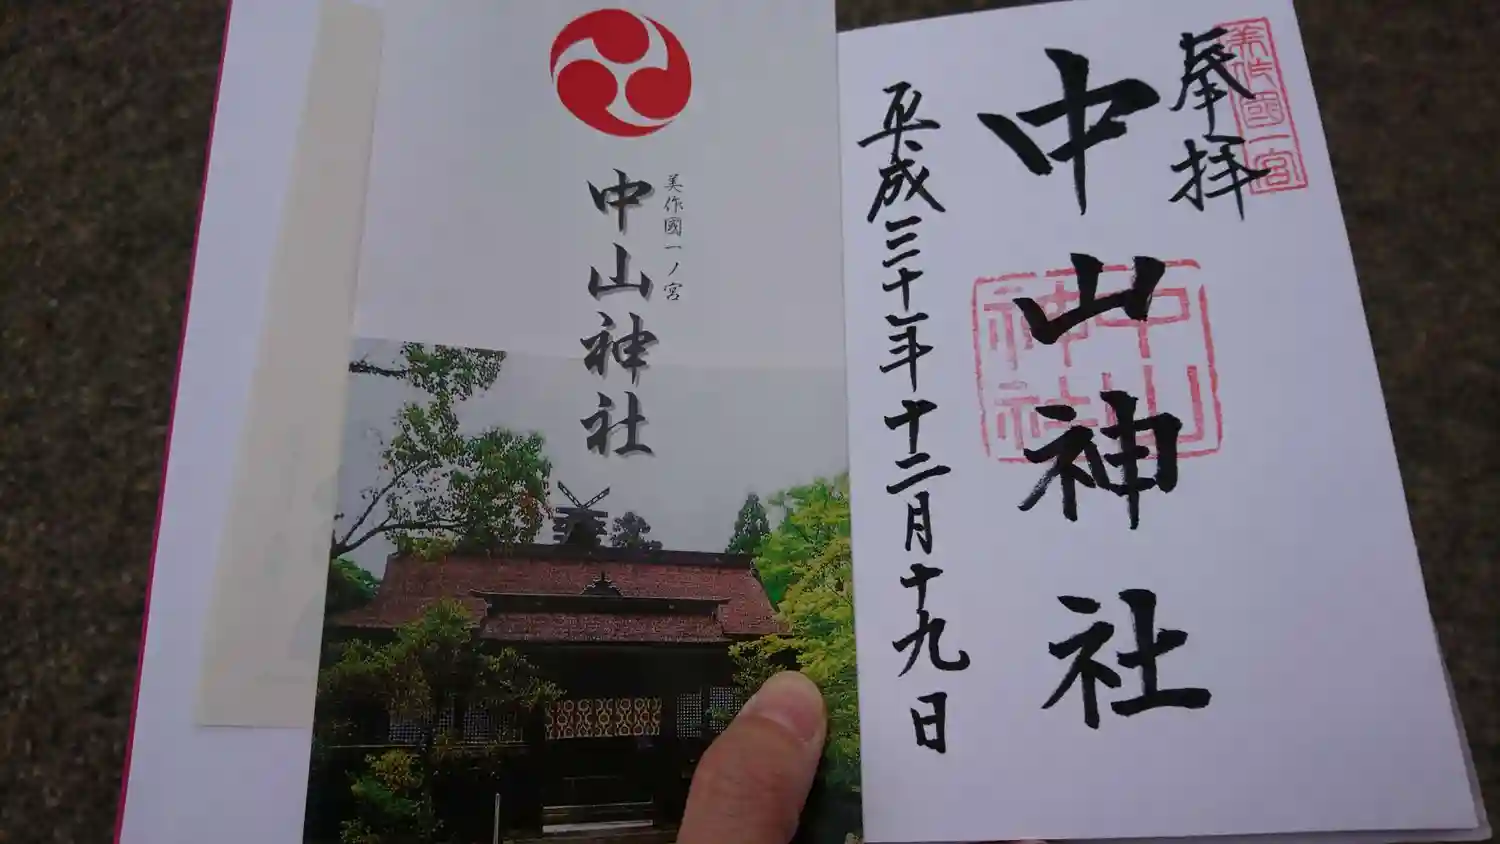 奉拝
美作國一宮
中山神社
中山神社
平成三十年十二月十九日
美作國一ノ宮
中山神社